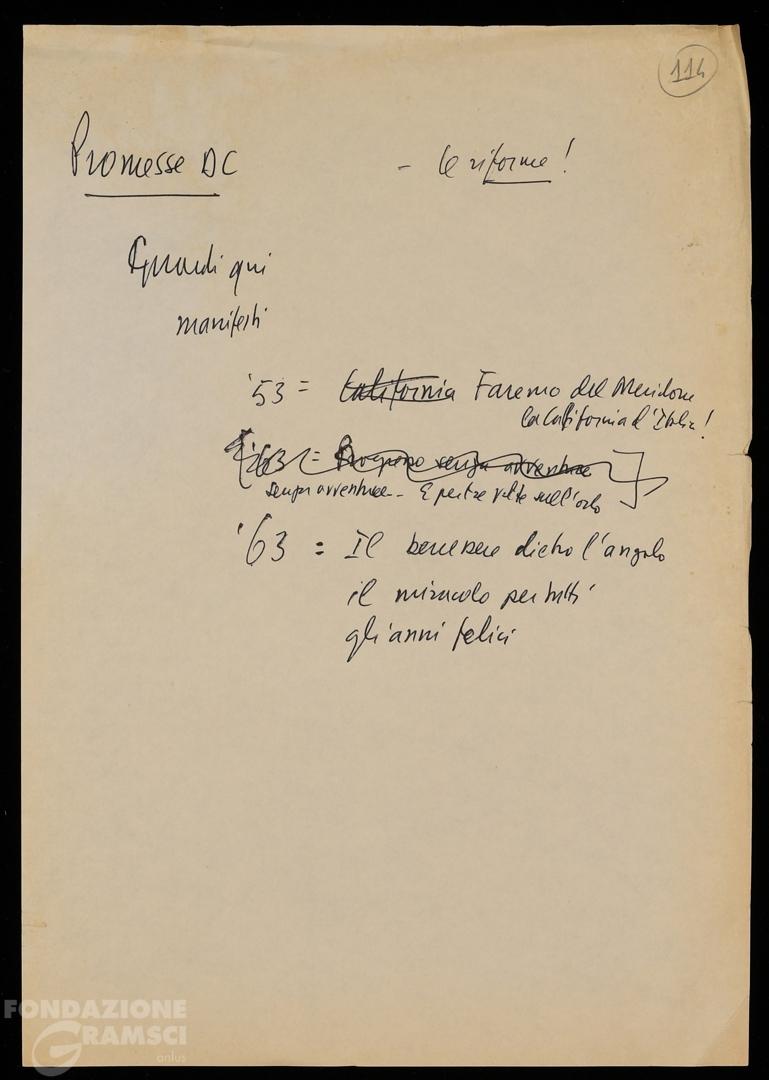 114
Promesse DC
- le riforme!
Guardi qui
manifesti
'53 = California Faremo del Meridione
la California d'Italia!
'63 = Progresso senza avventure
senza avventure - E per tre volte sull'orlo
'63 = Il benessere dietro l'angolo
il miracolo per tutti
gli anni felici
FONDAZIONE
GRAMSCI
onlus